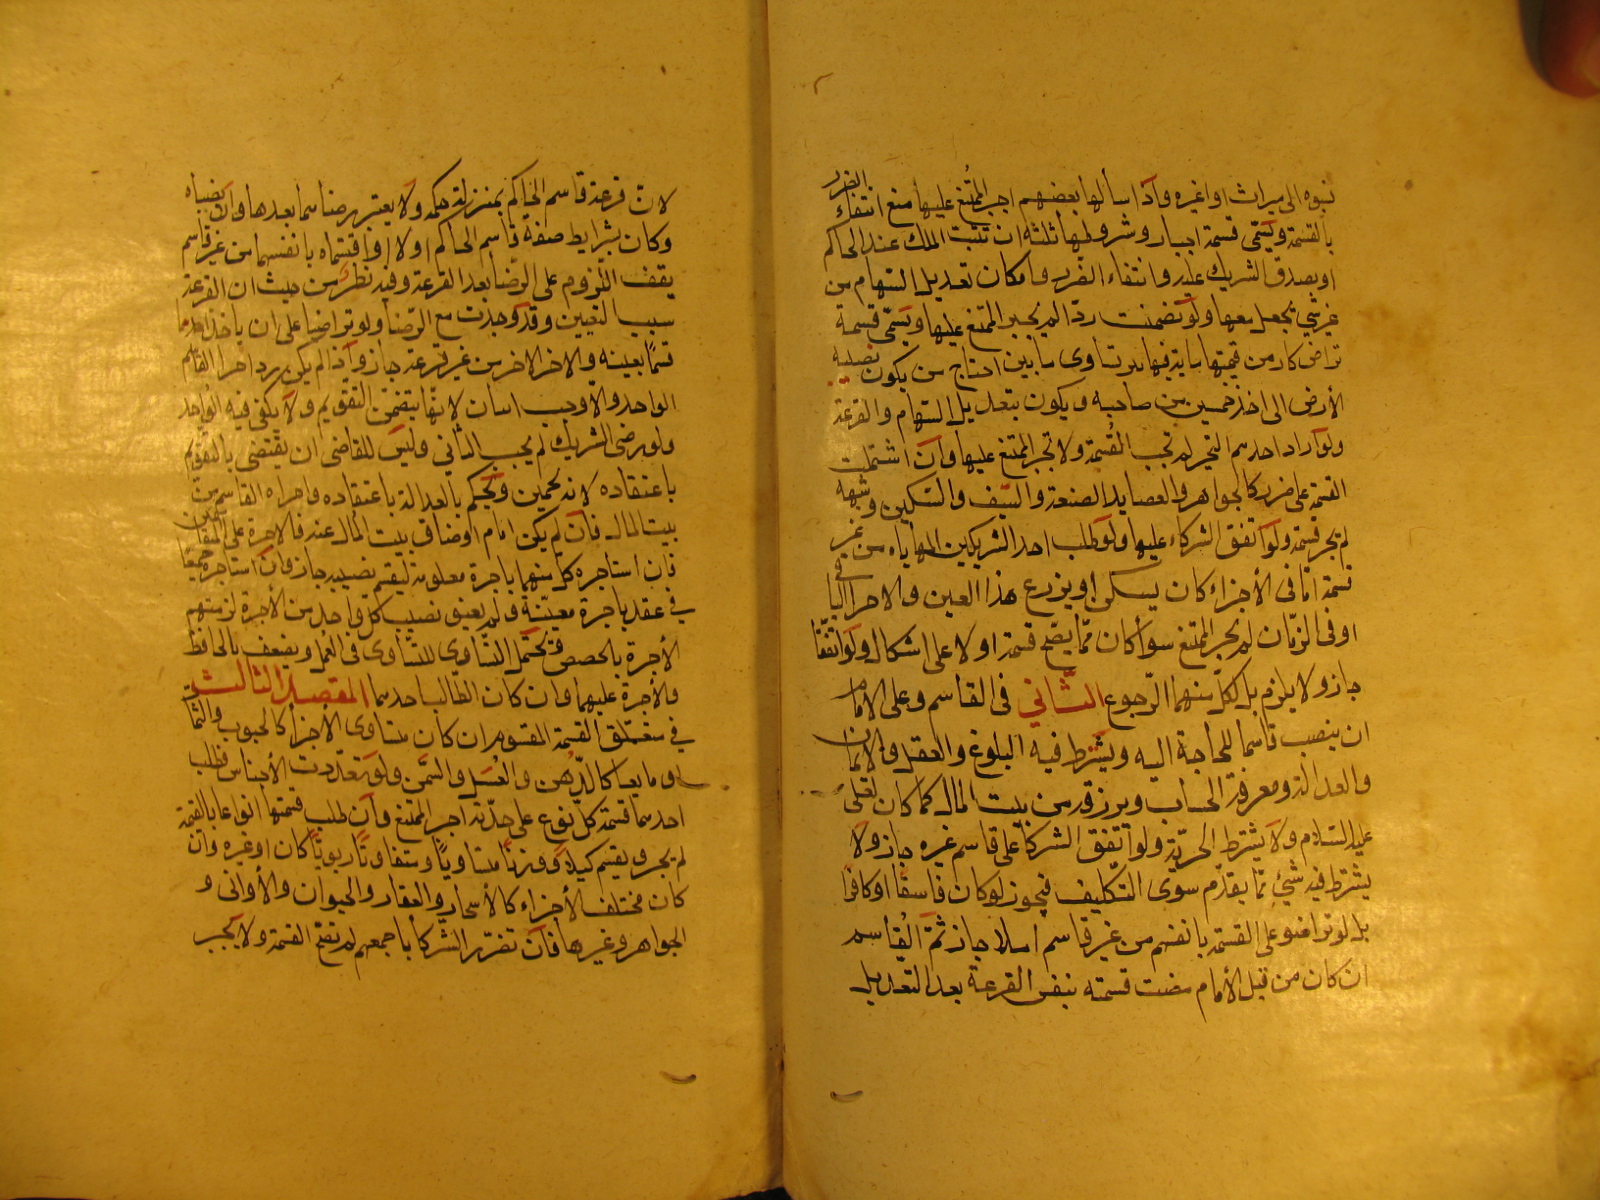 نسبوه الى ميراث او غيره واذا سالها بعضهم اجبر الممتنع عليها مع انتفاء الضرر
بالقسمة ويسمى قسمة اجبار وشروطها ثلثة ان تثبت الملك عند الحاكم
او يصدق الشريك عليه وانتفاء الضرر وامكان تعديل السهام من
غير شئ تجعل معها ولو تضمنت ردا لم يجبر الممتنع عليها ويسمى قسمة
تراض كارض قيمتها ماية فيها بئر تساوى ماتين احتاج من يكون نصيبه
الأرض الى اخذ خمسين من صاحبه ويكون بتعديل السهام والقرعة
ولو اراد احدهم التخير لم تجب القسمة ولا تجبر الممتنع عليها وان اشتملت
القسمة على ضرر كالجواهر والعضايد الضيقة والسيف والسكين وشبهه
لم يجز قسمة ولو اتفق الشركاء عليها ولو طلب احد الشريكين المهاياه من غير
قسمة اما فى الأجزاء كان يسكن او يزرع هذا المعين والاخر الباقى
او فى الزمان لم يجبر الممتنع سواء كان مما يصح قسمته اولا على اشكال ولو اتفقا
جاز ولا يلزم بل لكل منهما الرجوع الثاني فى القاسم وعلى الامام
ان ينصب قاسما للحاجة اليه ويشترط فيه البلوغ والعقل والايمان
والعدالة ومعرفة الحساب ويرزقه من بيت المال كما كان لعلى
عليه السلام ولا يشترط الحرية ولو اتفق الشركا على قاسم غيره جاز ولا
يشترط فيه شئ مما تقدم سوى التكليف فيجوز لو كان فاسقا او كافرا
بل لو تراضوا على القسمة بانفسهم من غير قاسم اصلا جاز ثم القاسم
ان كان من قبل الأمام مضت قسمته بنفس القرعة بعد التعديل
لان قرعة قاسم الحاكم بمنزلة حكمه ولا يعتبر رضاهما بعدها وان نصباه
وكان بشرايط صفة قاسم الحاكم اولا او اقتسماه بانفسهما من غير قاسم
يقف اللزوم على الرضا بعد القرعة وفيه نظر من حيث ان القرعة
سبب التعيين وقد وجدت مع الرضا ولو تراضيا على ان ياخذ احدهما
قسما بعينه والاخر الاخر من غير قرعة جاز واذا لم يكن رد اجزا القاسم
الواحد والا وجب اثنان لانها يتضمن التقويم ولا يكفى فيه الواحد
ولو رضى الشريك لم يجب الثاني وليس للقاضى ان يقضى بالتقويم
باعتقاده لانه تخمين ويحكم بالعدالة باعتقاده واجرة القاسم من
بيت المال فان لم يكن امام او ضاق بيت المال عنه فالاجرة على المتقاسمين
فان استاجره كل منهما باجرة معلومة ليقسم نصيبه جاز وان استاجره جميعا
في عقد باجرة معينة ولم يعين نصيب كل واحد من الأجرة لزمتهم
الأجرة بالحصص ويحتمل التساوى للتساوى فى العمل ويضعف بالحافظ
والأجرة عليهما وان كان الطالب احدهما المقصد الثالث
في متعلق القسمة المقسوم ان كان متساوى الأجزا كالحبوب والثمار
او مايعا كالدهن والعسل والسمن ولو تعددت الأجناس فطلب
احدهما قسمة كل نوع على حدته اجبر الممتنع وان طلب قسمتها انواعا بالقيمة
لم يجبر ويقسم كيلا ووزنا متساويا ومتفاوتا ربويا كان او غيره وان
كان مختلف الأجزاء كالاشجار والعقار والحيوان والأوانى و
الجواهر وغيرها فان تضرر الشركا باجمعهم لم تصح القسمة ولا يجبر